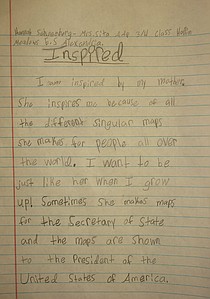 Hannah Schwanberg- Mrs. 2nd Class Hollin
Meadows E.S Alexandria
Inspired
I am inspired by my mother.
She inspires me because of all
the different singular maps
she makes for people all over
the world. I want to be
just like her when I grow
up! Sometimes she makes maps
for the Secretary of State
and the maps are shown
to the President of the
United States of America.